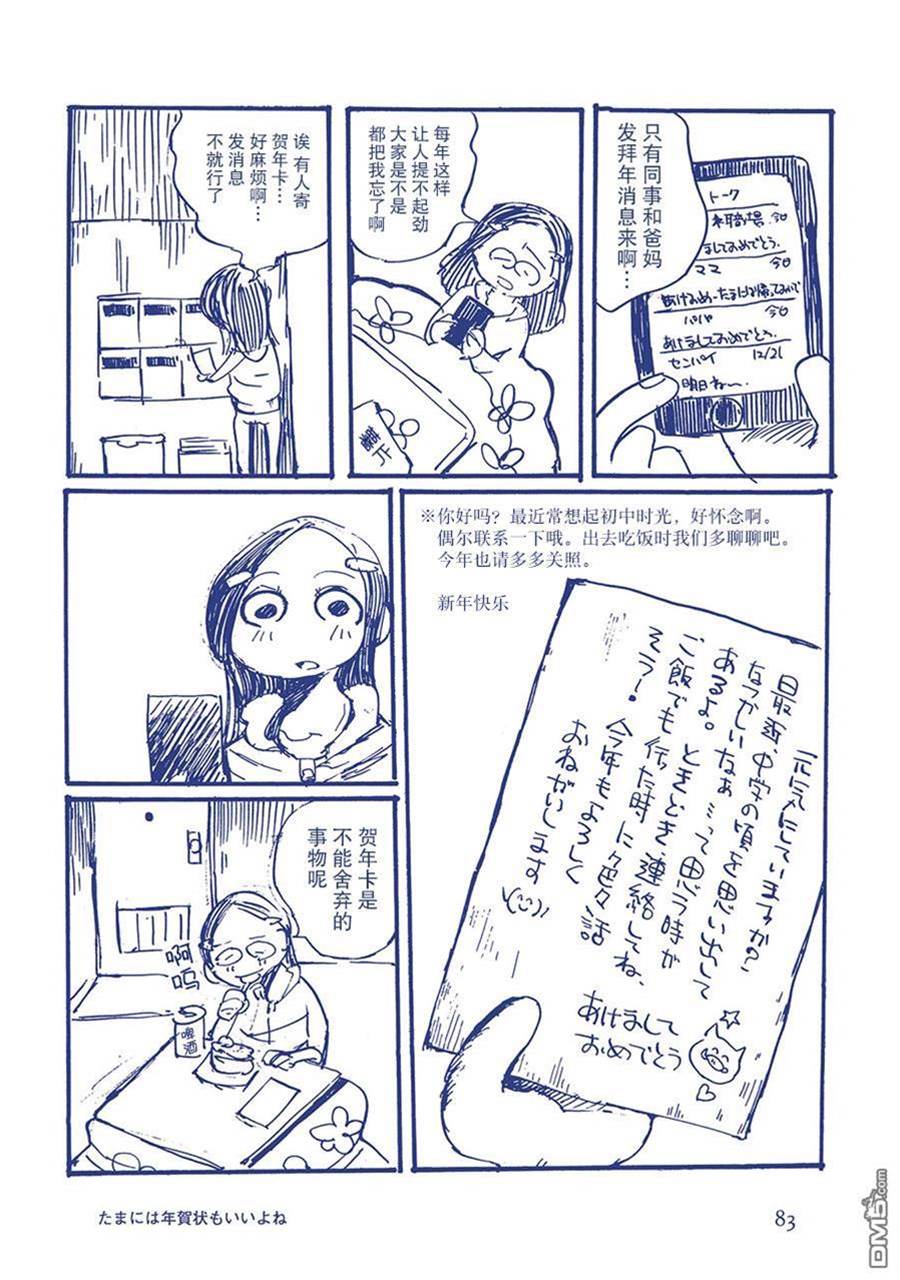 只有同事和爸妈
发拜年消息来啊…
トーク
今日
ましておめでとう.
ママ
今日
パパ
今日
あけましておめでとう.
センパイ
12/21
明日ね〜.
每年这样
让人提不起劲
大家是不是
都把我忘了啊
诶 有人寄
贺年卡…
好麻烦啊…
发消息
不就行了
※你好吗？最近常想起初中时光，好怀念啊。
偶尔联系一下哦。出去吃饭时我们多聊聊吧。
今年也请多多关照。
新年快乐
元気にしていますか?
最近、中学の頃を思い出して
なつかしいなぁ…って思う時が
あるよ。ときどき連絡してね、
ご飯でも行った時に色々話
そう!今年もよろしく
おねがいします
あけまして
おめでとう
贺年卡是
不能舍弃的
事物呢
啊
呜
啤酒
たまには年賀状もいいよね
83
DM5.com